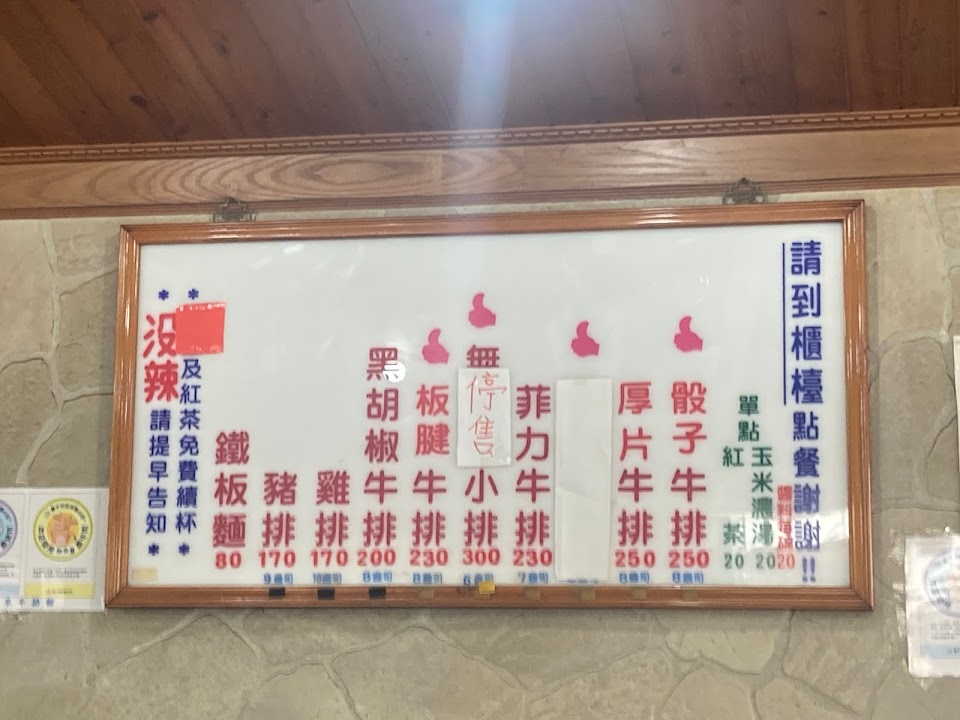 請到櫃檯點餐謝謝!!
單點
玉米濃湯 20
紅茶 20
骰子牛排 250
8盎司
厚片牛排 250
8盎司
菲力牛排 230
7盎司
無
停售
小排 300
6盎司
板腱牛排 230
8盎司
黑胡椒牛排 200
8盎司
雞排 170
10盎司
豬排 170
9盎司
鐵板麵 80
*及紅茶免費續杯*
*沒辣請提早告知*